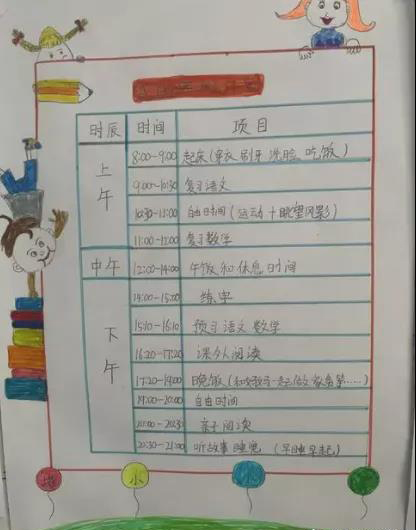 时辰 时间 项目
上午
8:00-9:00 起床(穿衣 刷牙 洗脸 吃饭)
9:00-10:30 复习语文
10:30-11:00 自由时间(运动+眺望风影)
11:00-12:00 复习数学
中午 12:00-14:00 午饭和休息时间
下午
14:00-15:00 练字
15:10-16:10 预习语文数学
16:20-17:20 课外阅读
17:20-19:00 晚饭
19:00-20:00 自由时间
20:00-20:30 亲子阅读
20:30-21:00 听故事睡觉(早睡早起)
小 小